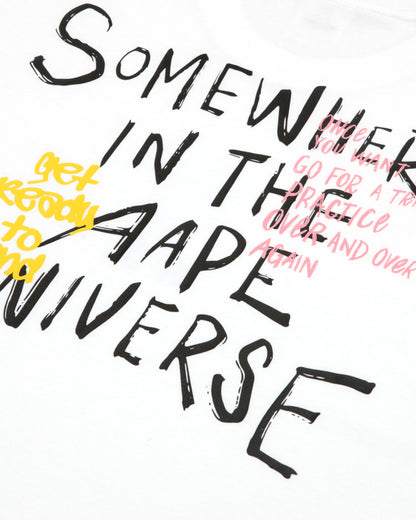 SOMEWHER
IN THE
AAPE
NIVERSE
get
Ready
to
ONCE
YOU WANT
GO FOR A TR
PRACTICE
OVER AND OVER
AGAIN